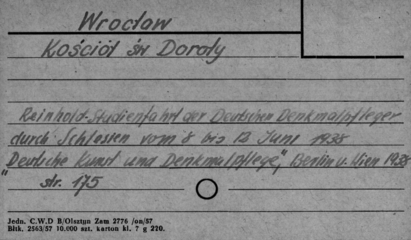 Wrocław
Kościół św Doroty
Reinhold-Studienfahrt der Deutschen Denkmalpfleger
durch Schlesien vom 8 bis 12 Juni 1938
"Deutsche Kunst und Denkmalpflege", Berlin u. Wien 1938
str. 175
Jedn. C.W.D B/Olsztyn Zam 2776 /on/57
Bltk. 2563/57 10.000 szt. karton kl. 7 g 220.